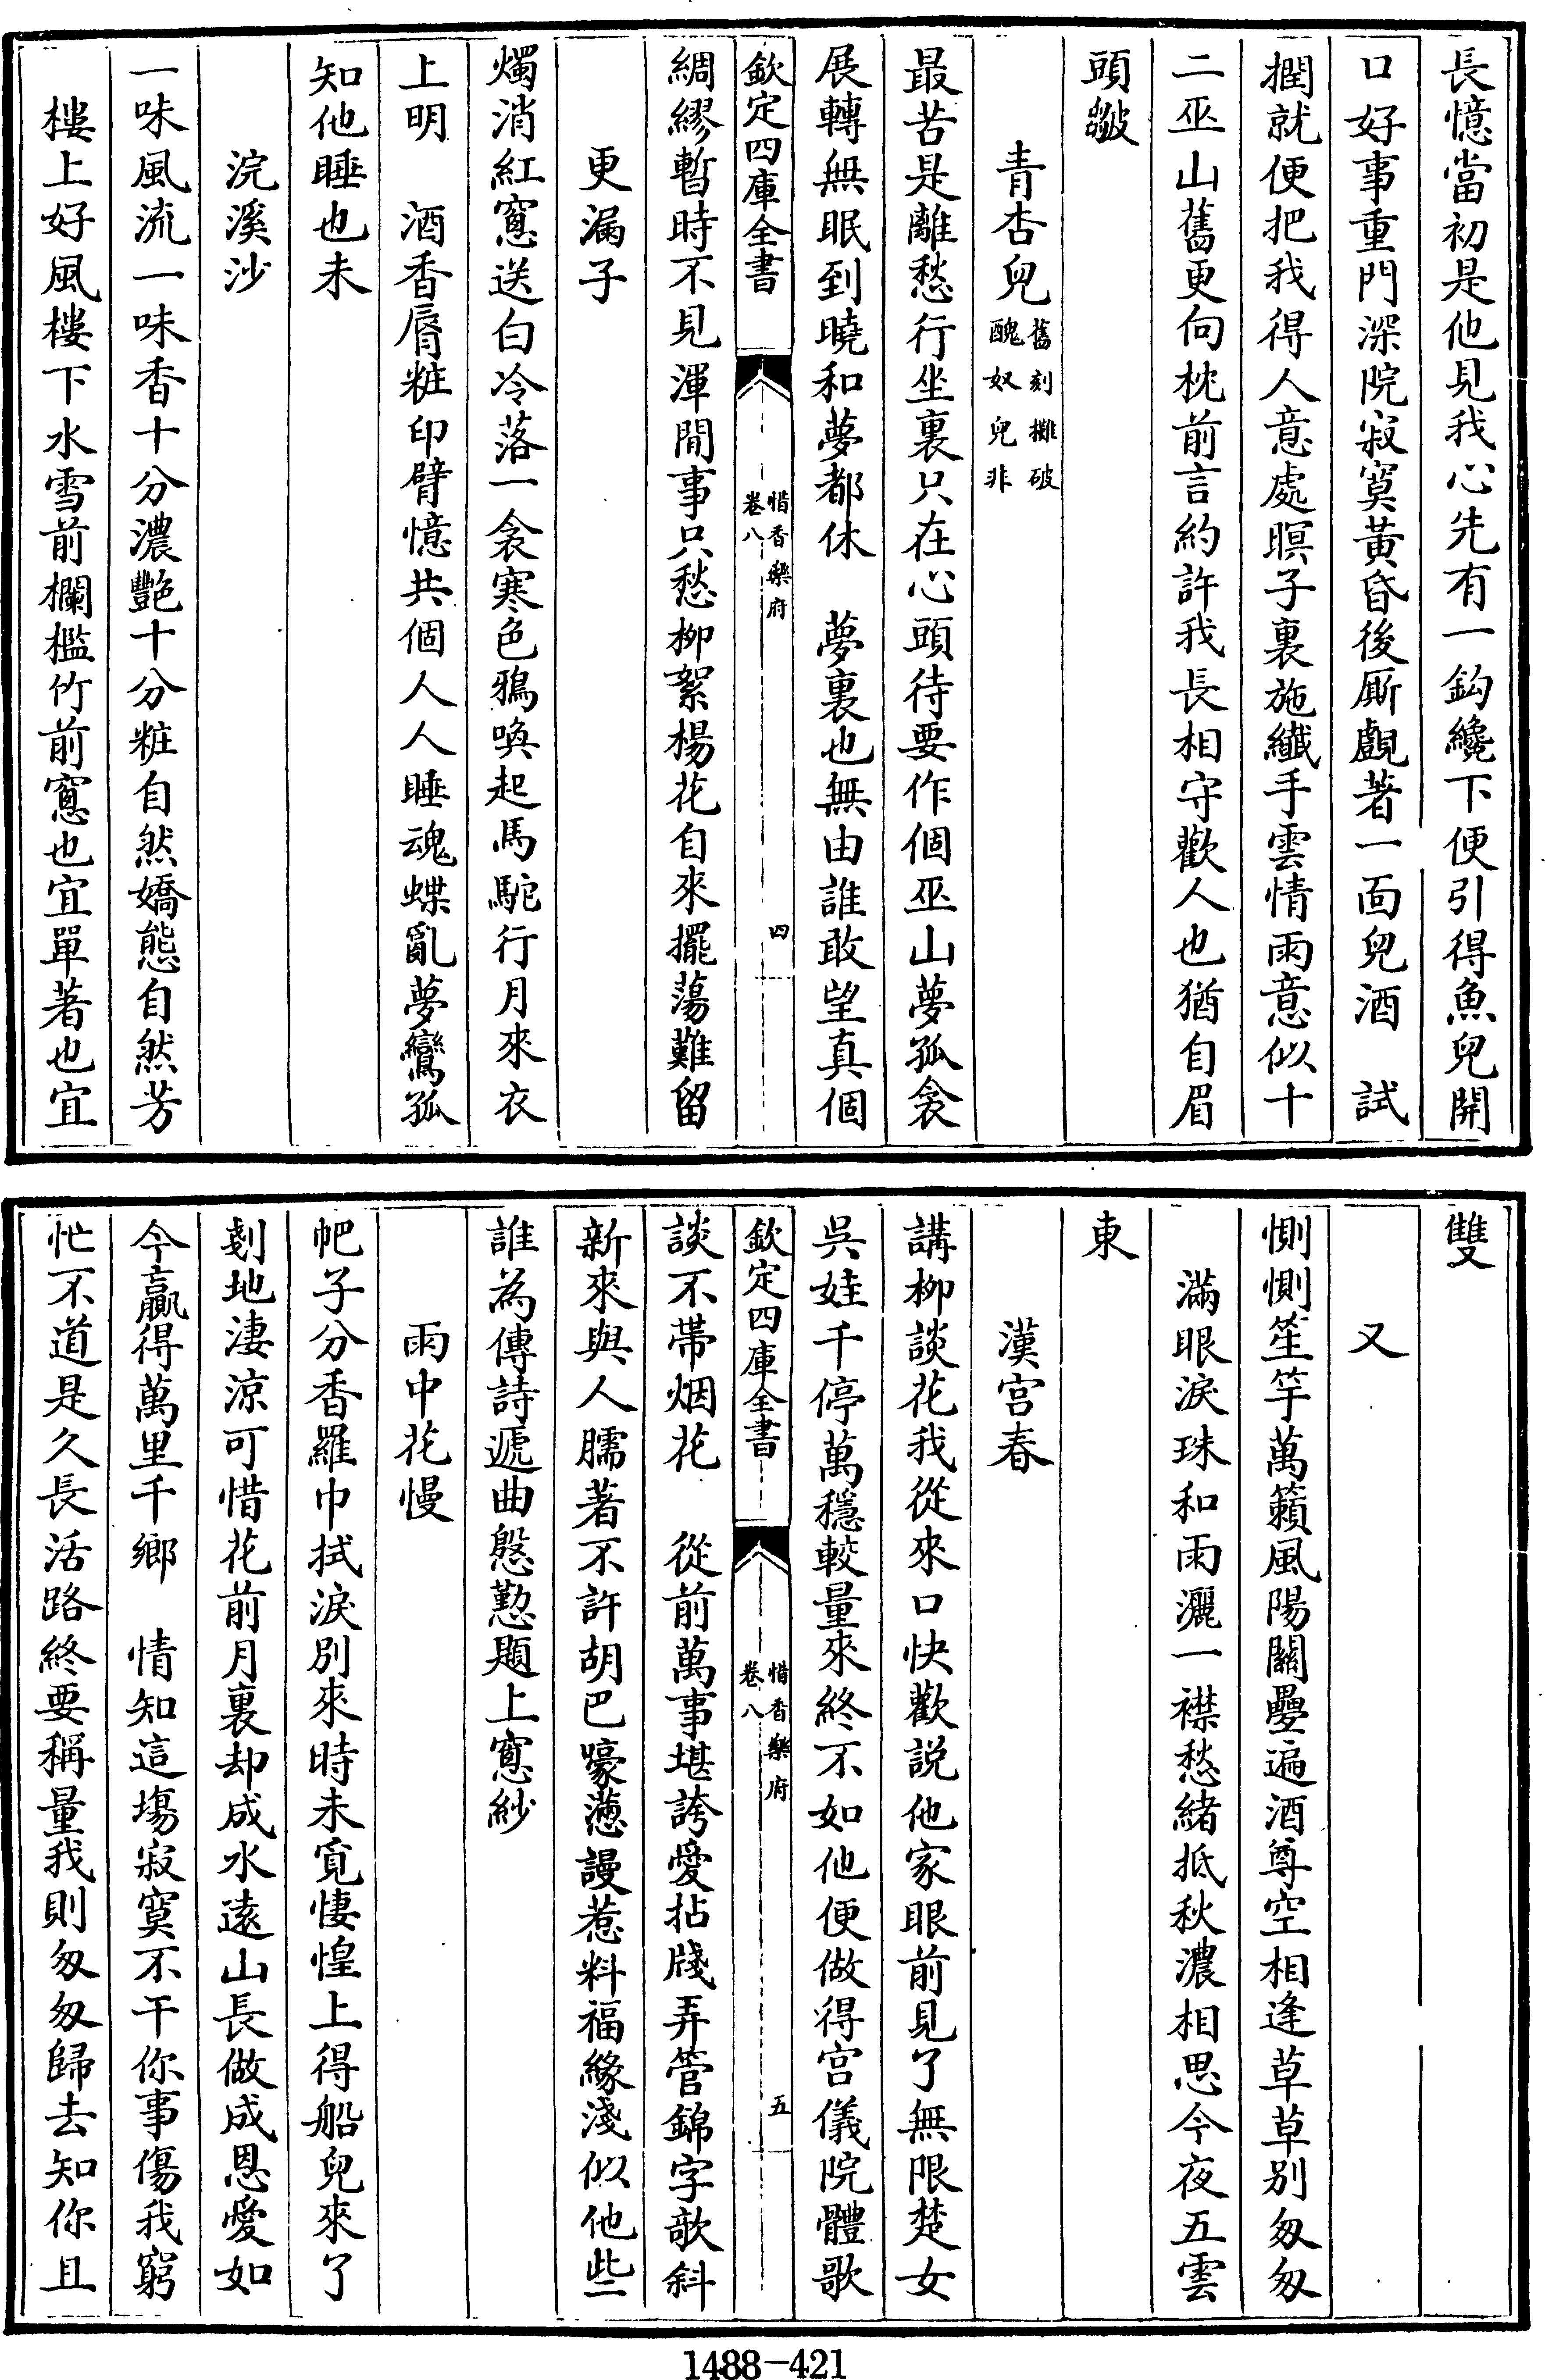 長憶當初是他見我心先有一鈎纔下便引得魚兒開
口好事重門深院寂寞黃昏後厮覷著一面兒酒　試
撋就便把我得人意處瞑子裏施纖手雲情雨意似十
二巫山舊更向枕前言約許我長相守歡人也猶自眉
頭皺
青杏兒舊刻攤破
醜奴兒非
最苦是離愁行坐裏只在心頭待要作個巫山夢孤衾
展轉無眠到曉和夢都休　夢裏也無由誰敢望真個
欽定四庫全書
惜香樂府
卷八
四
綢繆暫時不見渾閒事只愁柳絮楊花自來擺蕩難留
更漏子
燭消紅窻送白冷落一衾寒色鴉喚起馬駝行月來衣
上明　酒香脣粧印臂憶共個人人睡魂蝶亂夢鸞孤
知他睡也未
浣溪沙
一味風流一味香十分濃艷十分粧自然嬌態自然芳
樓上好風樓下水雪前欄檻竹前窻也宜單著也宜
雙
又
惻惻笙竽萬籟風陽關疊遍酒尊空相逢草草别匆匆
滿眼淚珠和雨灑一襟愁緒抵秋濃相思今夜五雲
東
漢宫春
講柳談花我從來口快歡説他家眼前見了無限楚女
吳娃千停萬穩較量來終不如他便做得宫儀院體歌
欽定四庫全書
惜香樂府
卷八
五
談不帶烟花　從前萬事堪誇愛拈牋弄管錦字欹斜
新來與人臑著不許胡巴嚎薳謾惹料福緣淺似他些
誰為傳詩遞曲慇懃題上窻紗
雨中花慢
帊子分香羅巾拭淚别來時未覓悽惶上得船兒來了
剗地凄涼可惜花前月裏却成水遠山長做成恩愛如
今贏得萬里千鄉　情知這塲寂寞不干你事傷我窮
忙不道是久長活路終要稱量我則匆匆歸去知你且
1488-421